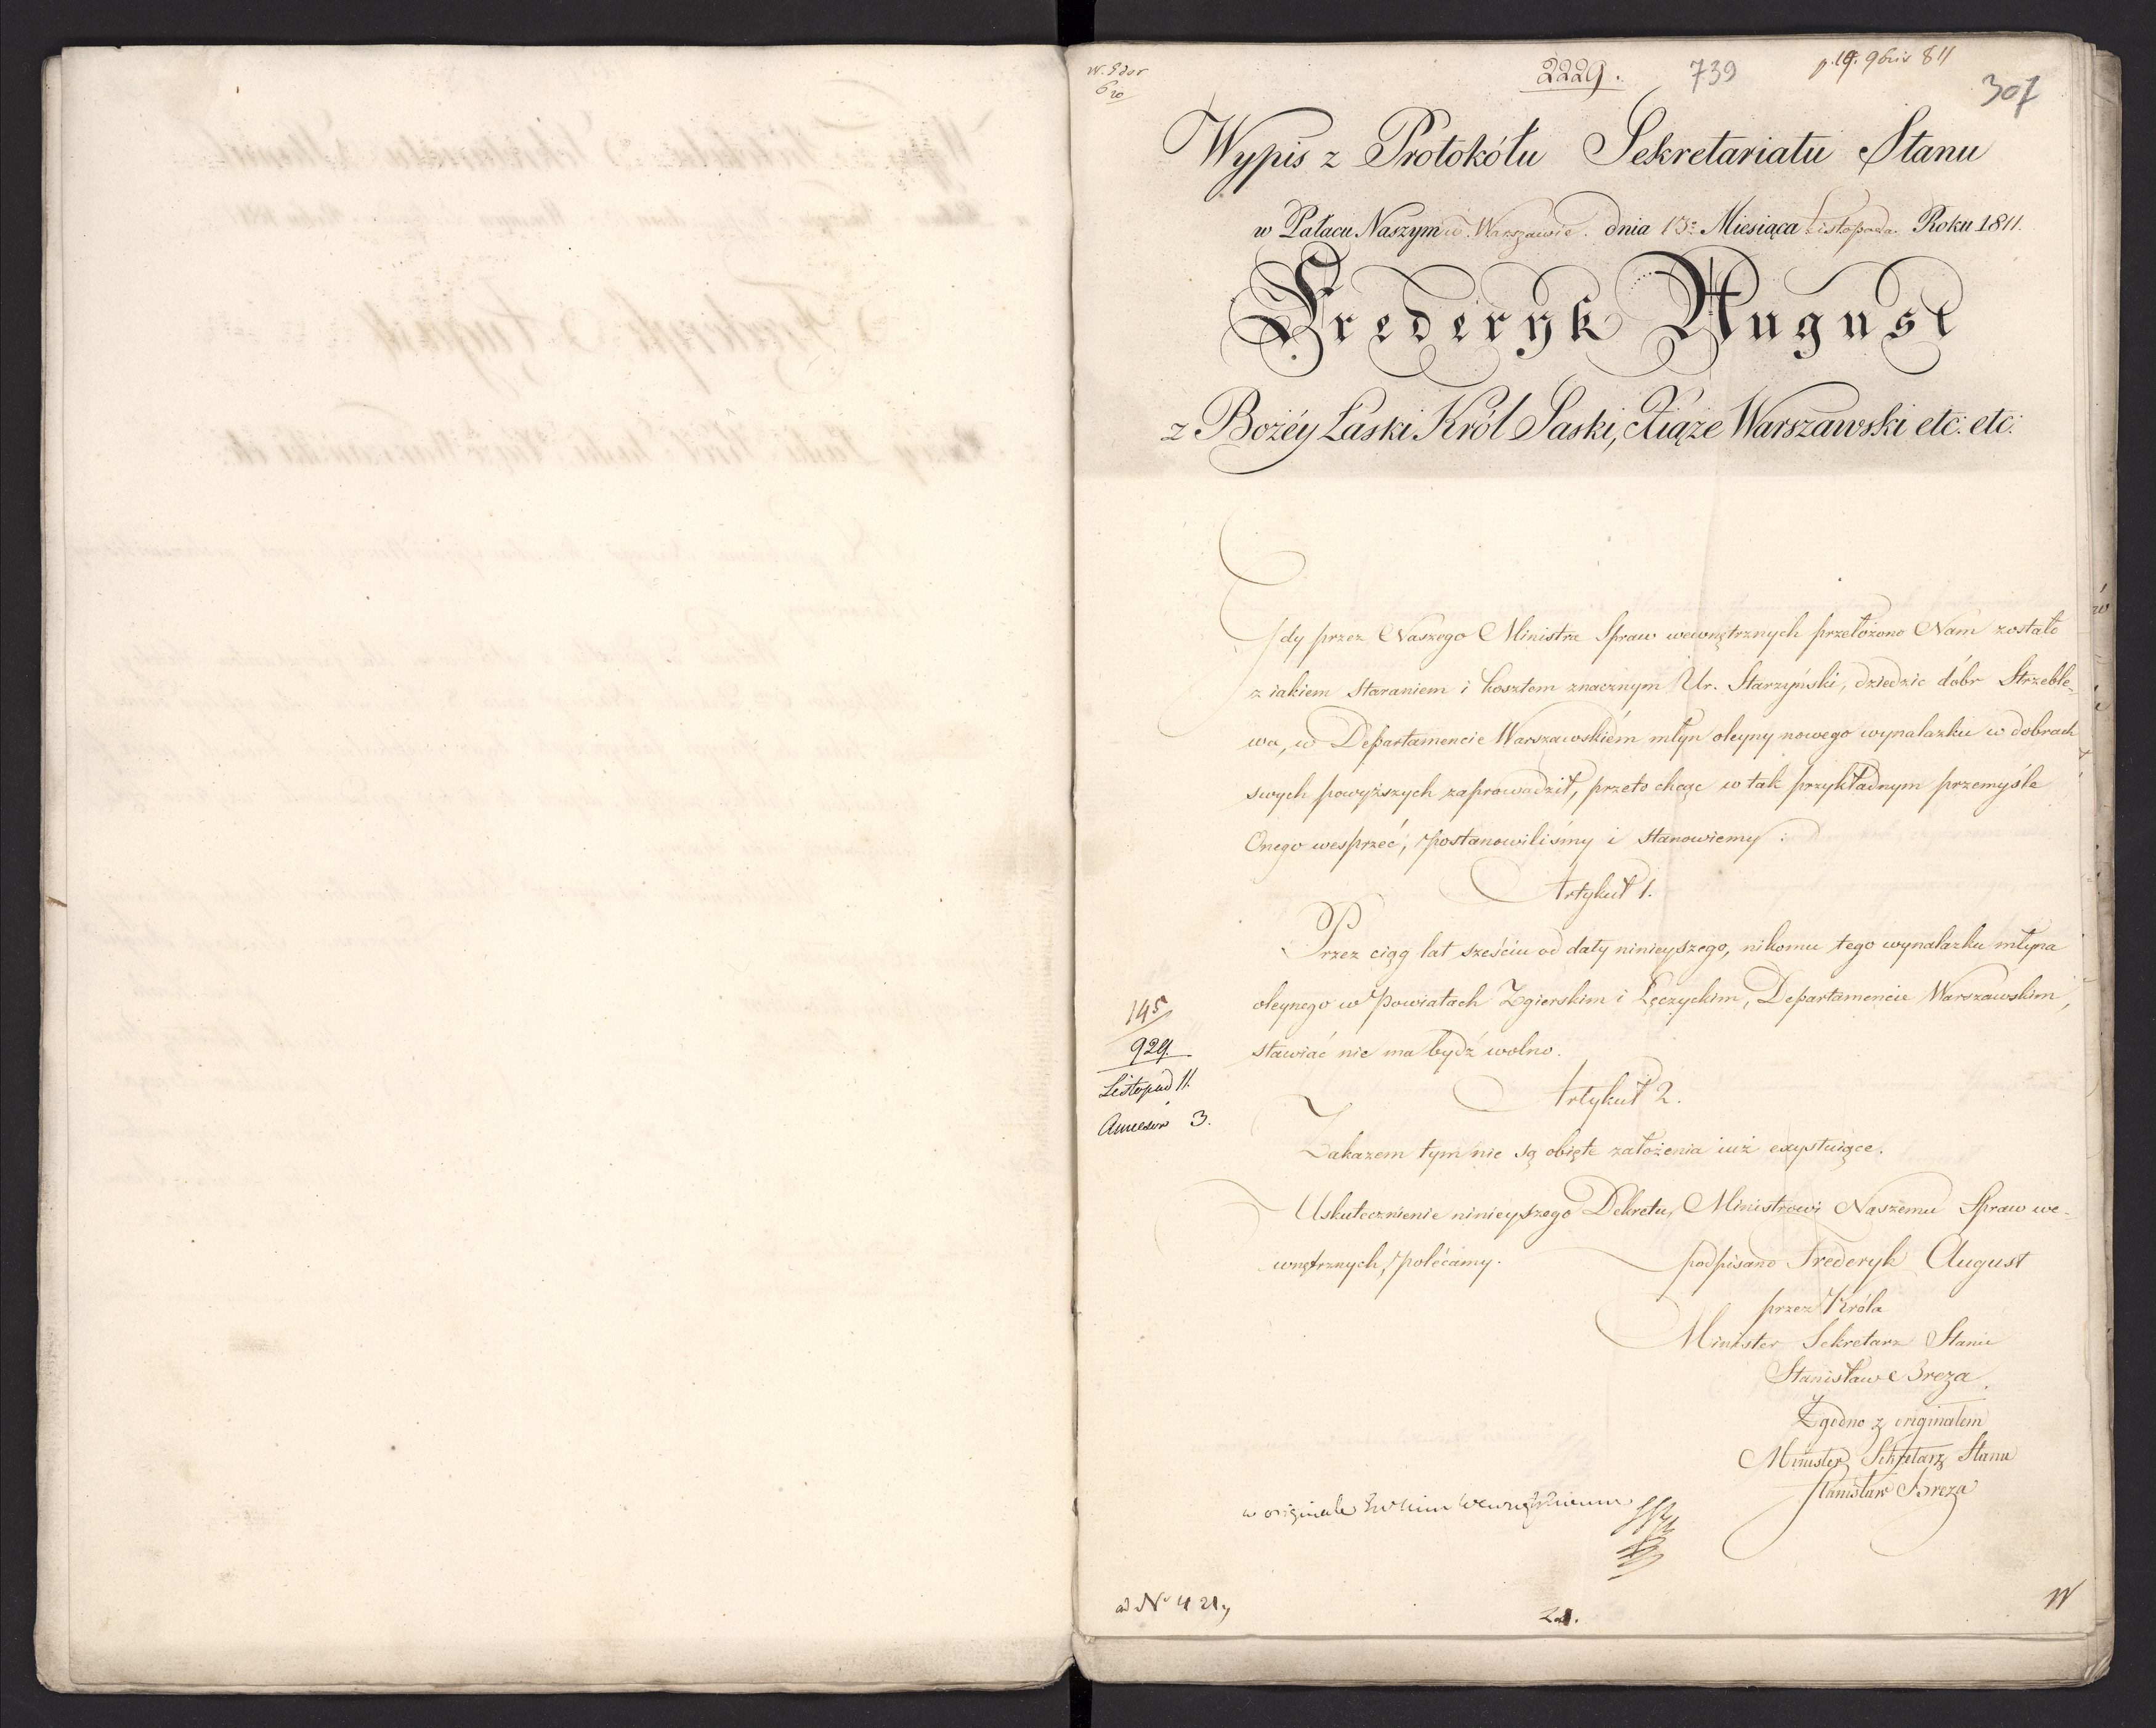 2229.
739
p. 19. 9bris 811
307
Wypis z Protokółu Sekretariatu Stanu
w Pałacu Naszym w Warszawie. dnia 13: Miesiąca Listopada. Roku 1811.
Frederyk August
z Bożéy Łaski Król Saski, Xiąże Warszawski etc: etc:
Gdy przez Naszego Ministra Spraw wewnętrznych przełożono Nam zostało
z iakiem staraniem i kosztem znacznym Ur. Starzyński, dziedzic dóbr Strzeble-
wa, w Departamencie Warszawskiém młyn oleyny nowego wynalazku w dobrach
swych powyższych zaprowadził, przeto chcąc w tak przykładnym przemyśle
Onego wesprzeć, postanowiliśmy i stanowiemy:
Artykuł 1.
Przez ciąg lat sześciu od daty ninieyszego, nikomu tego wynalazku młyna
oleynego w Powiatach Zgierskim i Łęczyckim, Departamencie Warszawskim,
stawiać nie ma bydź wolno.
145
929.
Listopad 11.
3.
Artykuł 2.
Zakazem tym nie są obięte założenia iuż exystuiące.
Uskutecznienie ninieyszego Dekretu, Ministrowi Naszemu Spraw we-
wnętrznych, polécamy.
podpisano Frederyk August
przez Króla
Minister Sekretarz Stanu
Stanisław Breza.
Zgodno z originałem
Minister Sekretarz Stanu
Stanisław Breza
w originale
ad Nº 4 21
21.
W